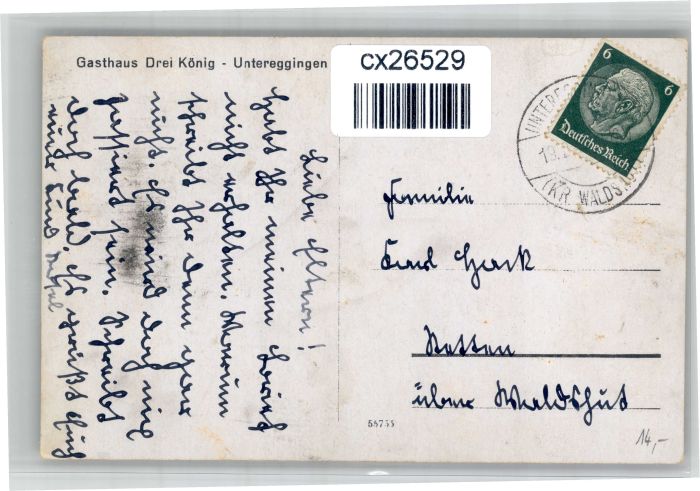 Gasthaus Drei König - Untereggingen
cx26529
6 6
Deutsches Reich
(KR. WALDS
Liebe Eltern!
Habt Ihr meinen Brief
nicht erhalten. Warum
schreibt Ihr denn gar
nicht. Es wird doch nix
passiert sein. Schreibt
doch bald. Es grüßt Euch
Familie
Karl Hack
Stetten
über Waldshut
58755
14,-